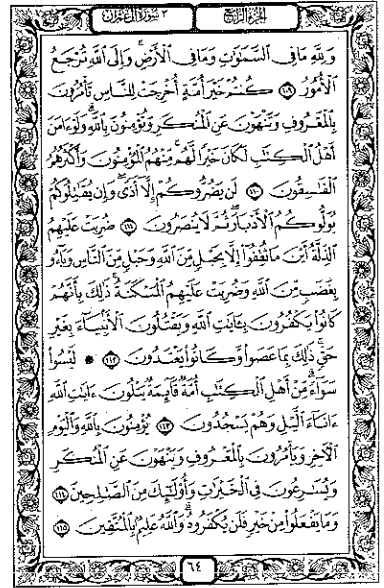 الجزء الرابع ٣ سورة آل عمران
وَلِلَّهِ مَا فِي السَّمَٰوَٰتِ وَمَا فِي الْأَرْضِ وَإِلَى اللَّهِ تُرْجَعُ
الْأُمُورُ ١٠٩ كُنتُمْ خَيْرَ أُمَّةٍ أُخْرِجَتْ لِلنَّاسِ تَأْمُرُونَ
بِالْمَعْرُوفِ وَتَنْهَوْنَ عَنِ الْمُنكَرِ وَتُؤْمِنُونَ بِاللَّهِ وَلَوْ ءَامَنَ
أَهْلُ الْكِتَٰبِ لَكَانَ خَيْرًا لَّهُم مِّنْهُمُ الْمُؤْمِنُونَ وَأَكْثَرُهُمُ
الْفَٰسِقُونَ ١١٠ لَن يَضُرُّوكُمْ إِلَّا أَذًى وَإِن يُقَٰتِلُوكُمْ
يُوَلُّوكُمُ الْأَدْبَارَ ثُمَّ لَا يُنصَرُونَ ١١١ ضُرِبَتْ عَلَيْهِمُ
الذِّلَّةُ أَيْنَ مَا ثُقِفُوا إِلَّا بِحَبْلٍ مِّنَ اللَّهِ وَحَبْلٍ مِّنَ النَّاسِ وَبَاءُو
بِغَضَبٍ مِّنَ اللَّهِ وَضُرِبَتْ عَلَيْهِمُ الْمَسْكَنَةُ ذَٰلِكَ بِأَنَّهُمْ
كَانُوا يَكْفُرُونَ بِـَٔايَٰتِ اللَّهِ وَيَقْتُلُونَ الْأَنۢبِيَاءَ بِغَيْرِ
حَقٍّ ذَٰلِكَ بِمَا عَصَوا وَّكَانُوا يَعْتَدُونَ ١١٢ ۞ لَيْسُوا
سَوَاءً مِّنْ أَهْلِ الْكِتَٰبِ أُمَّةٌ قَائِمَةٌ يَتْلُونَ ءَايَٰتِ اللَّهِ
ءَانَاءَ الَّيْلِ وَهُمْ يَسْجُدُونَ ١١٣ يُؤْمِنُونَ بِاللَّهِ وَالْيَوْمِ
الْءَاخِرِ وَيَأْمُرُونَ بِالْمَعْرُوفِ وَيَنْهَوْنَ عَنِ الْمُنكَرِ
وَيُسَٰرِعُونَ فِي الْخَيْرَٰتِ وَأُولَٰئِكَ مِنَ الصَّٰلِحِينَ ١١٤
وَمَا يَفْعَلُوا مِنْ خَيْرٍ فَلَن يُكْفَرُوهُ وَاللَّهُ عَلِيمٌ بِالْمُتَّقِينَ ١١٥
٦٤